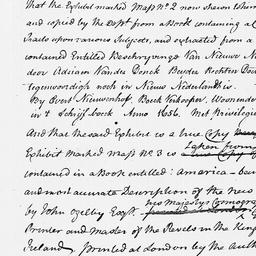 that the Exhibit marked Mass No 2 now shewn to him
and copied by the Dept from a Book containing al
Tracts upon various Subjects, and extracted from a
contained Entitled Beschryvinge Van Nieuw Ne
door Adriaen Vander Donck Beyder Rechten Doc
tegenwoordigh noch in Nieuw Nederlandt is.
By Evert Nieuwenhof, Boeck Verkooper, Woonende
in't Schrijf-boeck Anno 1656. Met Privilegie
And that the said Exhibit is a true Copy
taken from
Exhibit marked Mass No 3 is a true Copy
contained in a Book entitled: America - bein
and most accurate Description of the New
his Majestys Cosmogra
by John Ogelby Esqr. printed at London
Printer and Master of the Revels in the King
Ireland, Printed at London by the Auth